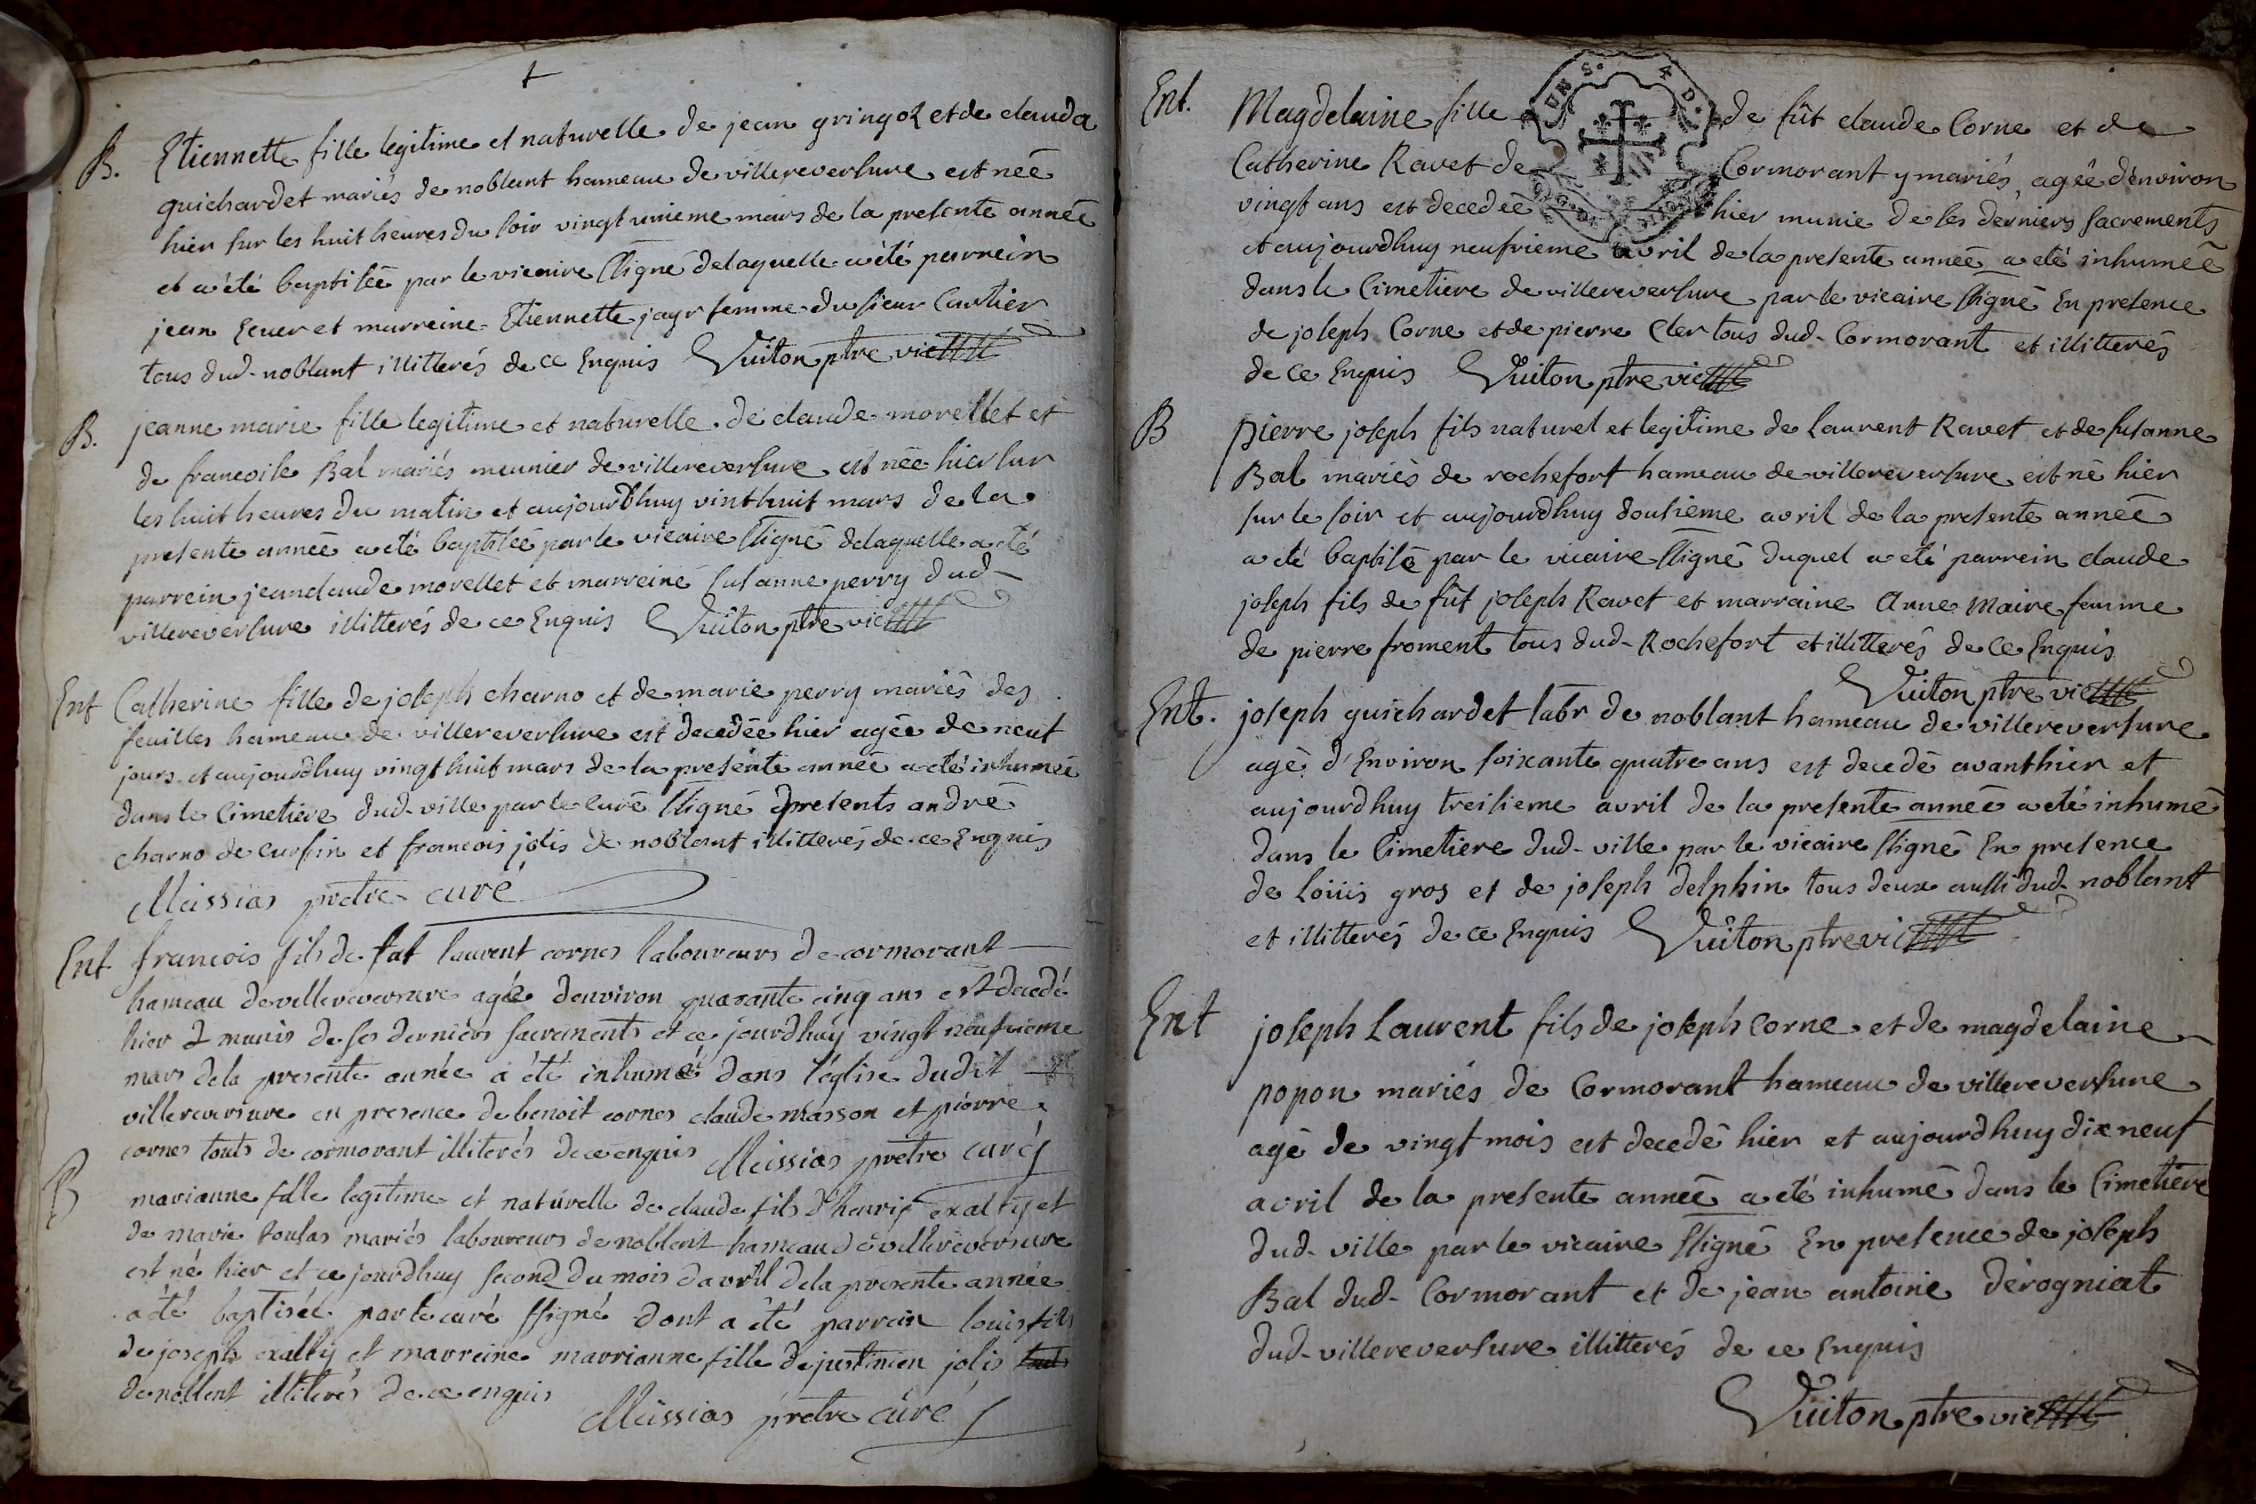 B. Etiennette fille legitime et naturelle de jean gringoz et de clauda
guichardet mariés de noblant hameau de villereversure est neé
hier sur les huit heures du soir vingt unieme mars de la presente anneé
et a été baptiseé par le vicaire ssigné de laquelle a été parrein
jean ecuer et marreine Etiennette jayr femme du sieur Cartier
tous dud. noblant illitterés de ce Enquis Vuiton ptre vic
B. jeanne marie fille legitime et naturelle de claude morellet et
de francoise Bal mariés meunier de villereversure est neé hier sur
les huit heures du matin et aujourdhuy vint huit mars de la
presente anneé a été baptiseé par le vicaire ssigné de laquelle a été
parrein jean claude morellet et marreine susanne perry dud.
villereversure illitterés de ce Enquis Vuiton ptre vic
Ent Catherine fille de joseph charno et de marie perry mariés des
feuilles hameau de villereversure est decedeé hier ageé de neuf
jours et aujourdhuy vingt huit mars de la presente anneé a été inhumeé
dans le Cimetiere dud. ville par le curé ssigné presents andré
charno de cursin et francois jolis de noblant illitterés de ce Enquis
Meissias pretre curé
Ent francois fils de laurent cornes laboureurs de cormorant
hameau de villereversure agé denviron quarante cinq ans est decedé
hier munis de ses derniers sacrements et ce jourdhuy vingt neufvieme
mars de la presente année a été inhumé dans l'église dudit
villereversure en presence de benoit cornes claude masson et pierre
cornes touts de cormorant illiterés de ce enquis Meissias pretre curé
B marianne fille legitime et naturelle de claude fils d'henrip exalty et
de marie toulas mariés laboureurs de noblent hameau de villereversure
est né hier et ce jourdhuy second du mois davril de la presente année
a été baptisée par le curé ssigné dont a été parrain louis fils
de joseph exalty et marreine marrianne fille de justinien jolis
de noblent illiterés de ce enquis Meissias pretre curé
Ent. Magdelaine fille de fût claude Corne et de
Catherine Ravet de Cormorant y mariés, ageé d'environ
vingt ans est decedeé hier munie de ses derniers sacrements
et aujourdhuy neufvieme avril de la presente anneé a été inhumeé
dans le Cimetiere de villereversure par le vicaire ssigné En presence
de joseph Corne et de pierre Cler tous dud. Cormorant et illitterés
de ce Enquis Vuiton ptre vic
B pierre joseph fils naturel et legitime de Laurent Ravet et de susanne
Bal mariés de rochefort hameau de villereversure est né hier
sur le soir et aujourdhuy dousieme avril de la presente anneé
a été baptisé par le vicaire ssigné duquel a été parrein claude
joseph fils de fût joseph Ravet et marraine Anne Maire femme
de pierre froment tous dud. Rochefort et illitterés de ce Enquis
Vuiton ptre vic
Ent. joseph guichardet labr de noblant hameau de villereversure
agé d'Environ soixante quatre ans est decedé avanthier et
aujourdhuy treisieme avril de la presente anneé a été inhumé
dans le Cimetiere dud. ville par le vicaire ssigné En presence
de Loüis gros et de joseph delphin tous deux aussi dud. noblant
et illitterés de ce Enquis Vuiton ptre vic
Ent joseph Laurent fils de joseph Corne et de magdelaine
popon mariés de Cormorant hameau de villereversure
agé de vingt mois est decedé hier et aujourdhuy dix neuf
avril de la presente anneé a été inhumé dans le Cimetiere
dud. ville par le vicaire ssigné En presence de joseph
Bal dud. Cormorant et de jean antoine derogniat
dud. villereversure illitterés de ce Enquis
Vuiton ptre vic